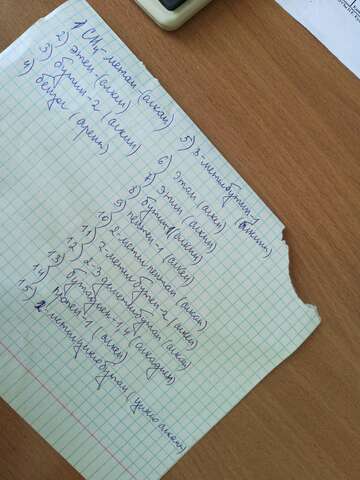 1 CH4 - метан - (алкан)
2) этен - (алкен)
3) бутин - 2 (алкин)
4) бензол (арены)
5) 3-метилбутин-1 (алкин)
6) этан (алкан)
7) этин (алкин)
8) бутин (алкин)
9) пентен - 1 (алкен)
10) 2-метилпентан (алкан)
11) 2-метилбутен-2 (алкен)
12) 2-3 диметилбутан (алкан)
13) бутадиен-1,4 (алкадиен)
14) пропен-1 (алкен)
15) 2-метилциклобутан (циклоалкан)